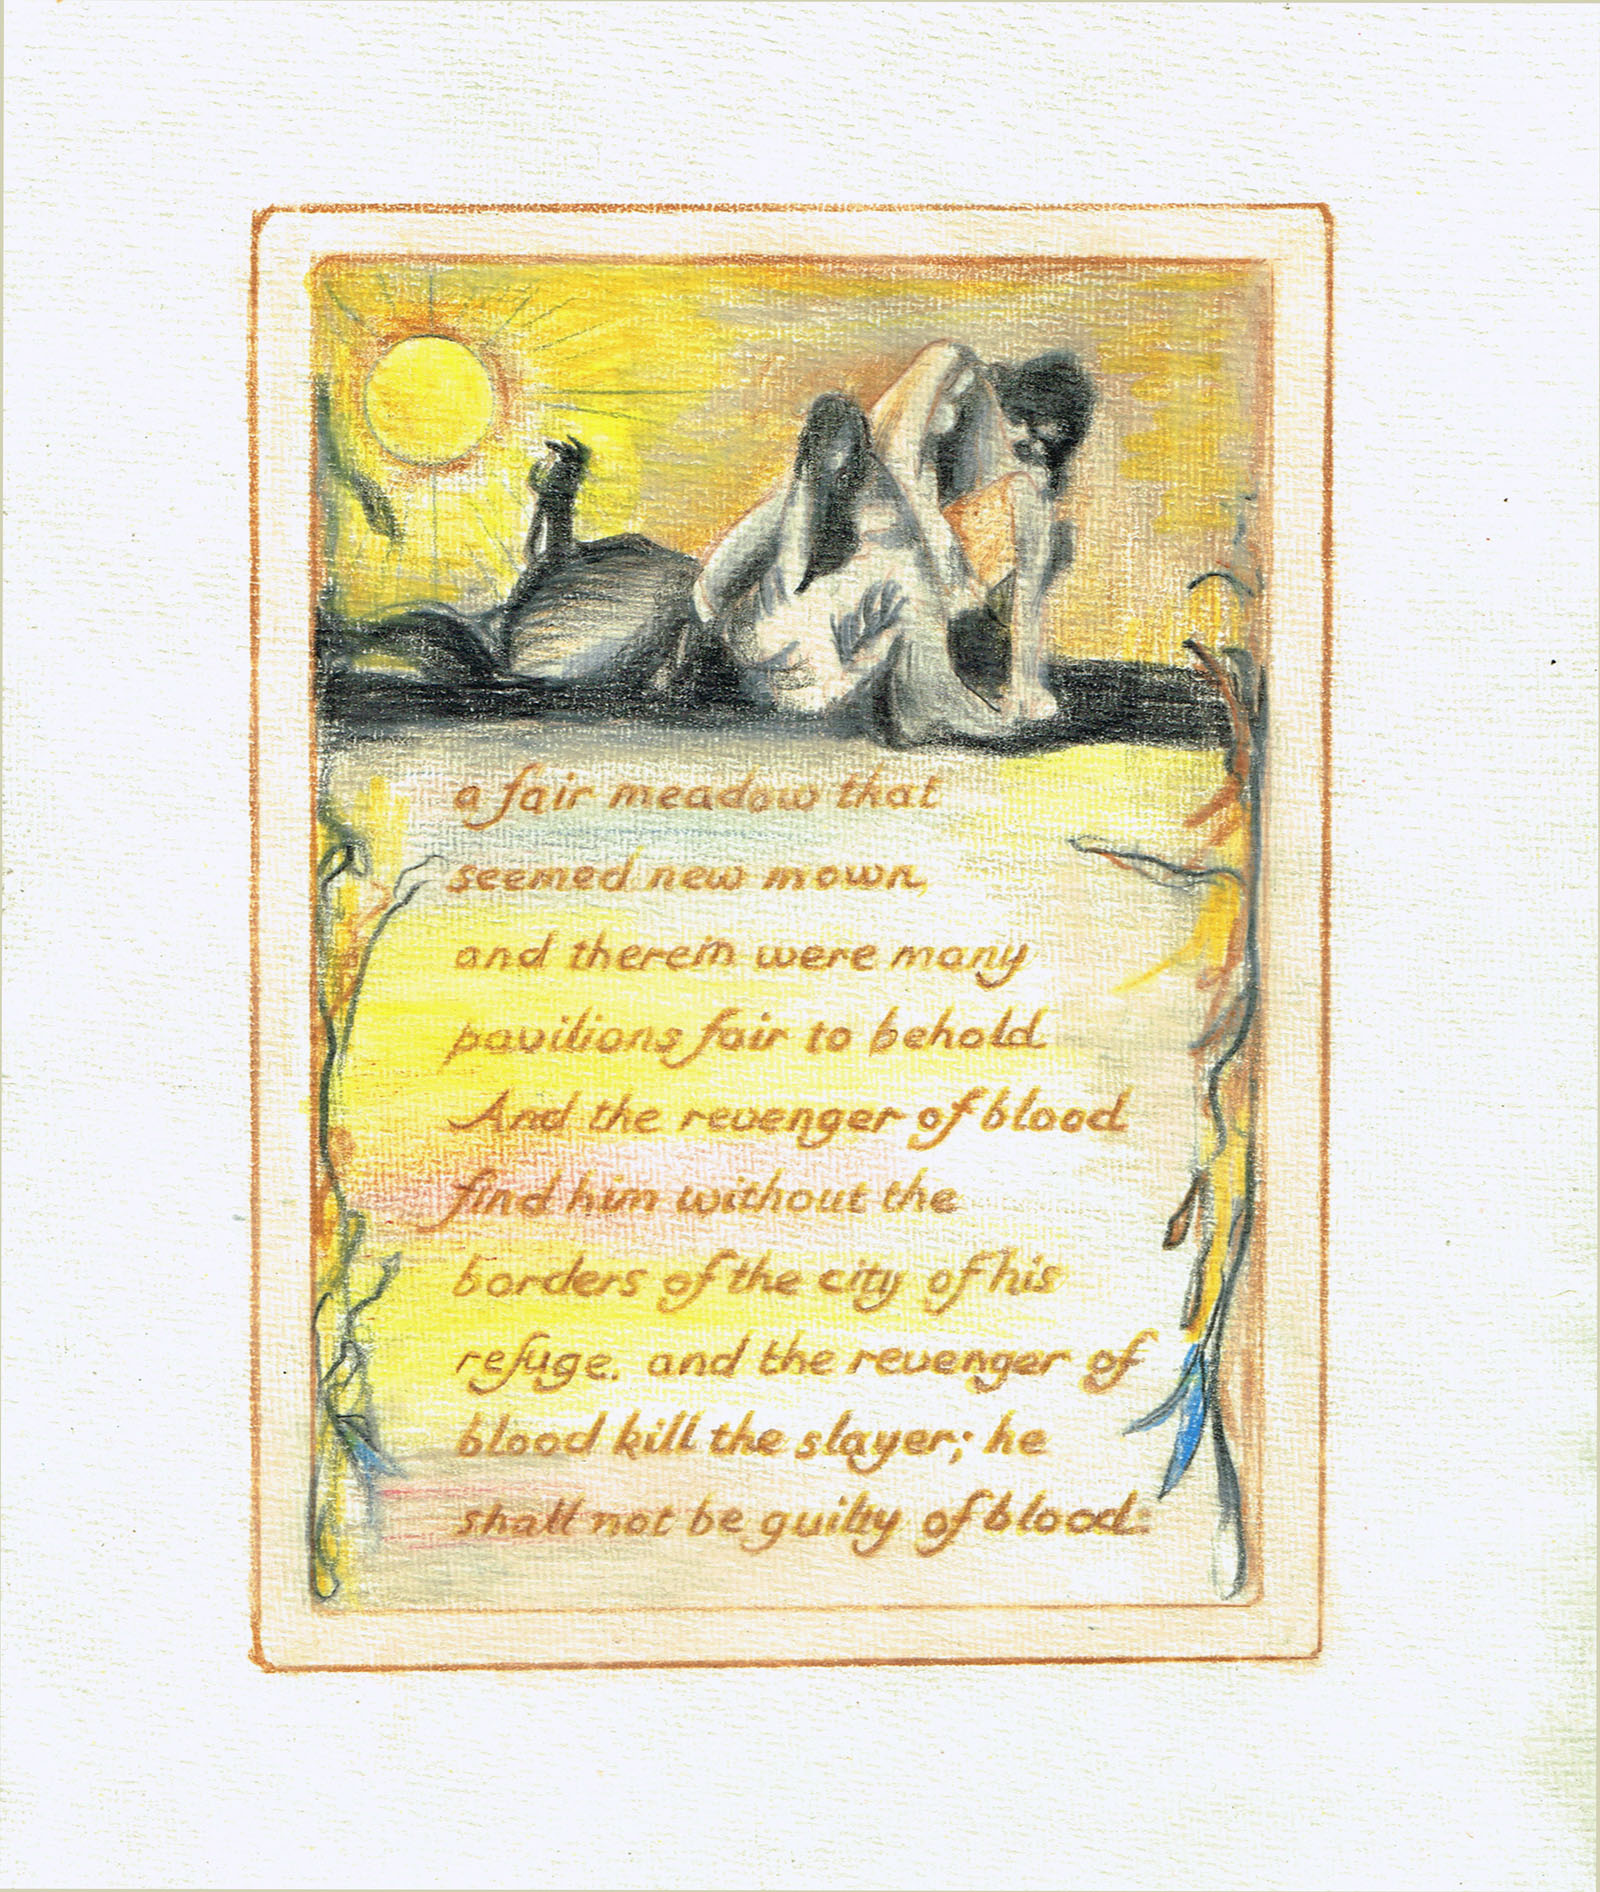 a fair meadow that
seemed new mown,
and therein were many
pavilions fair to behold
And the revenger of blood
find him without the
borders of the city of his
refuge. and the revenger of
blood kill the slayer; he
shall not be guilty of blood: